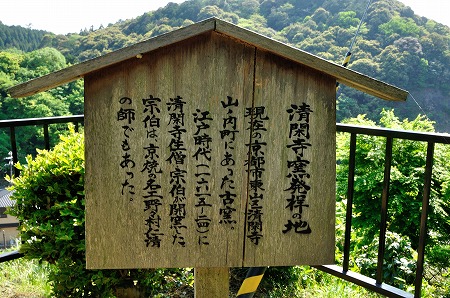 清閑寺窯発祥の地
現在の京都市東山区清閑寺
山ノ内町にあった古窯。
江戸時代(一六五三〜四)に
清閑寺住僧、宗伯が開窯した
宗伯は、京焼名工野々村仁清
の師でもあった。